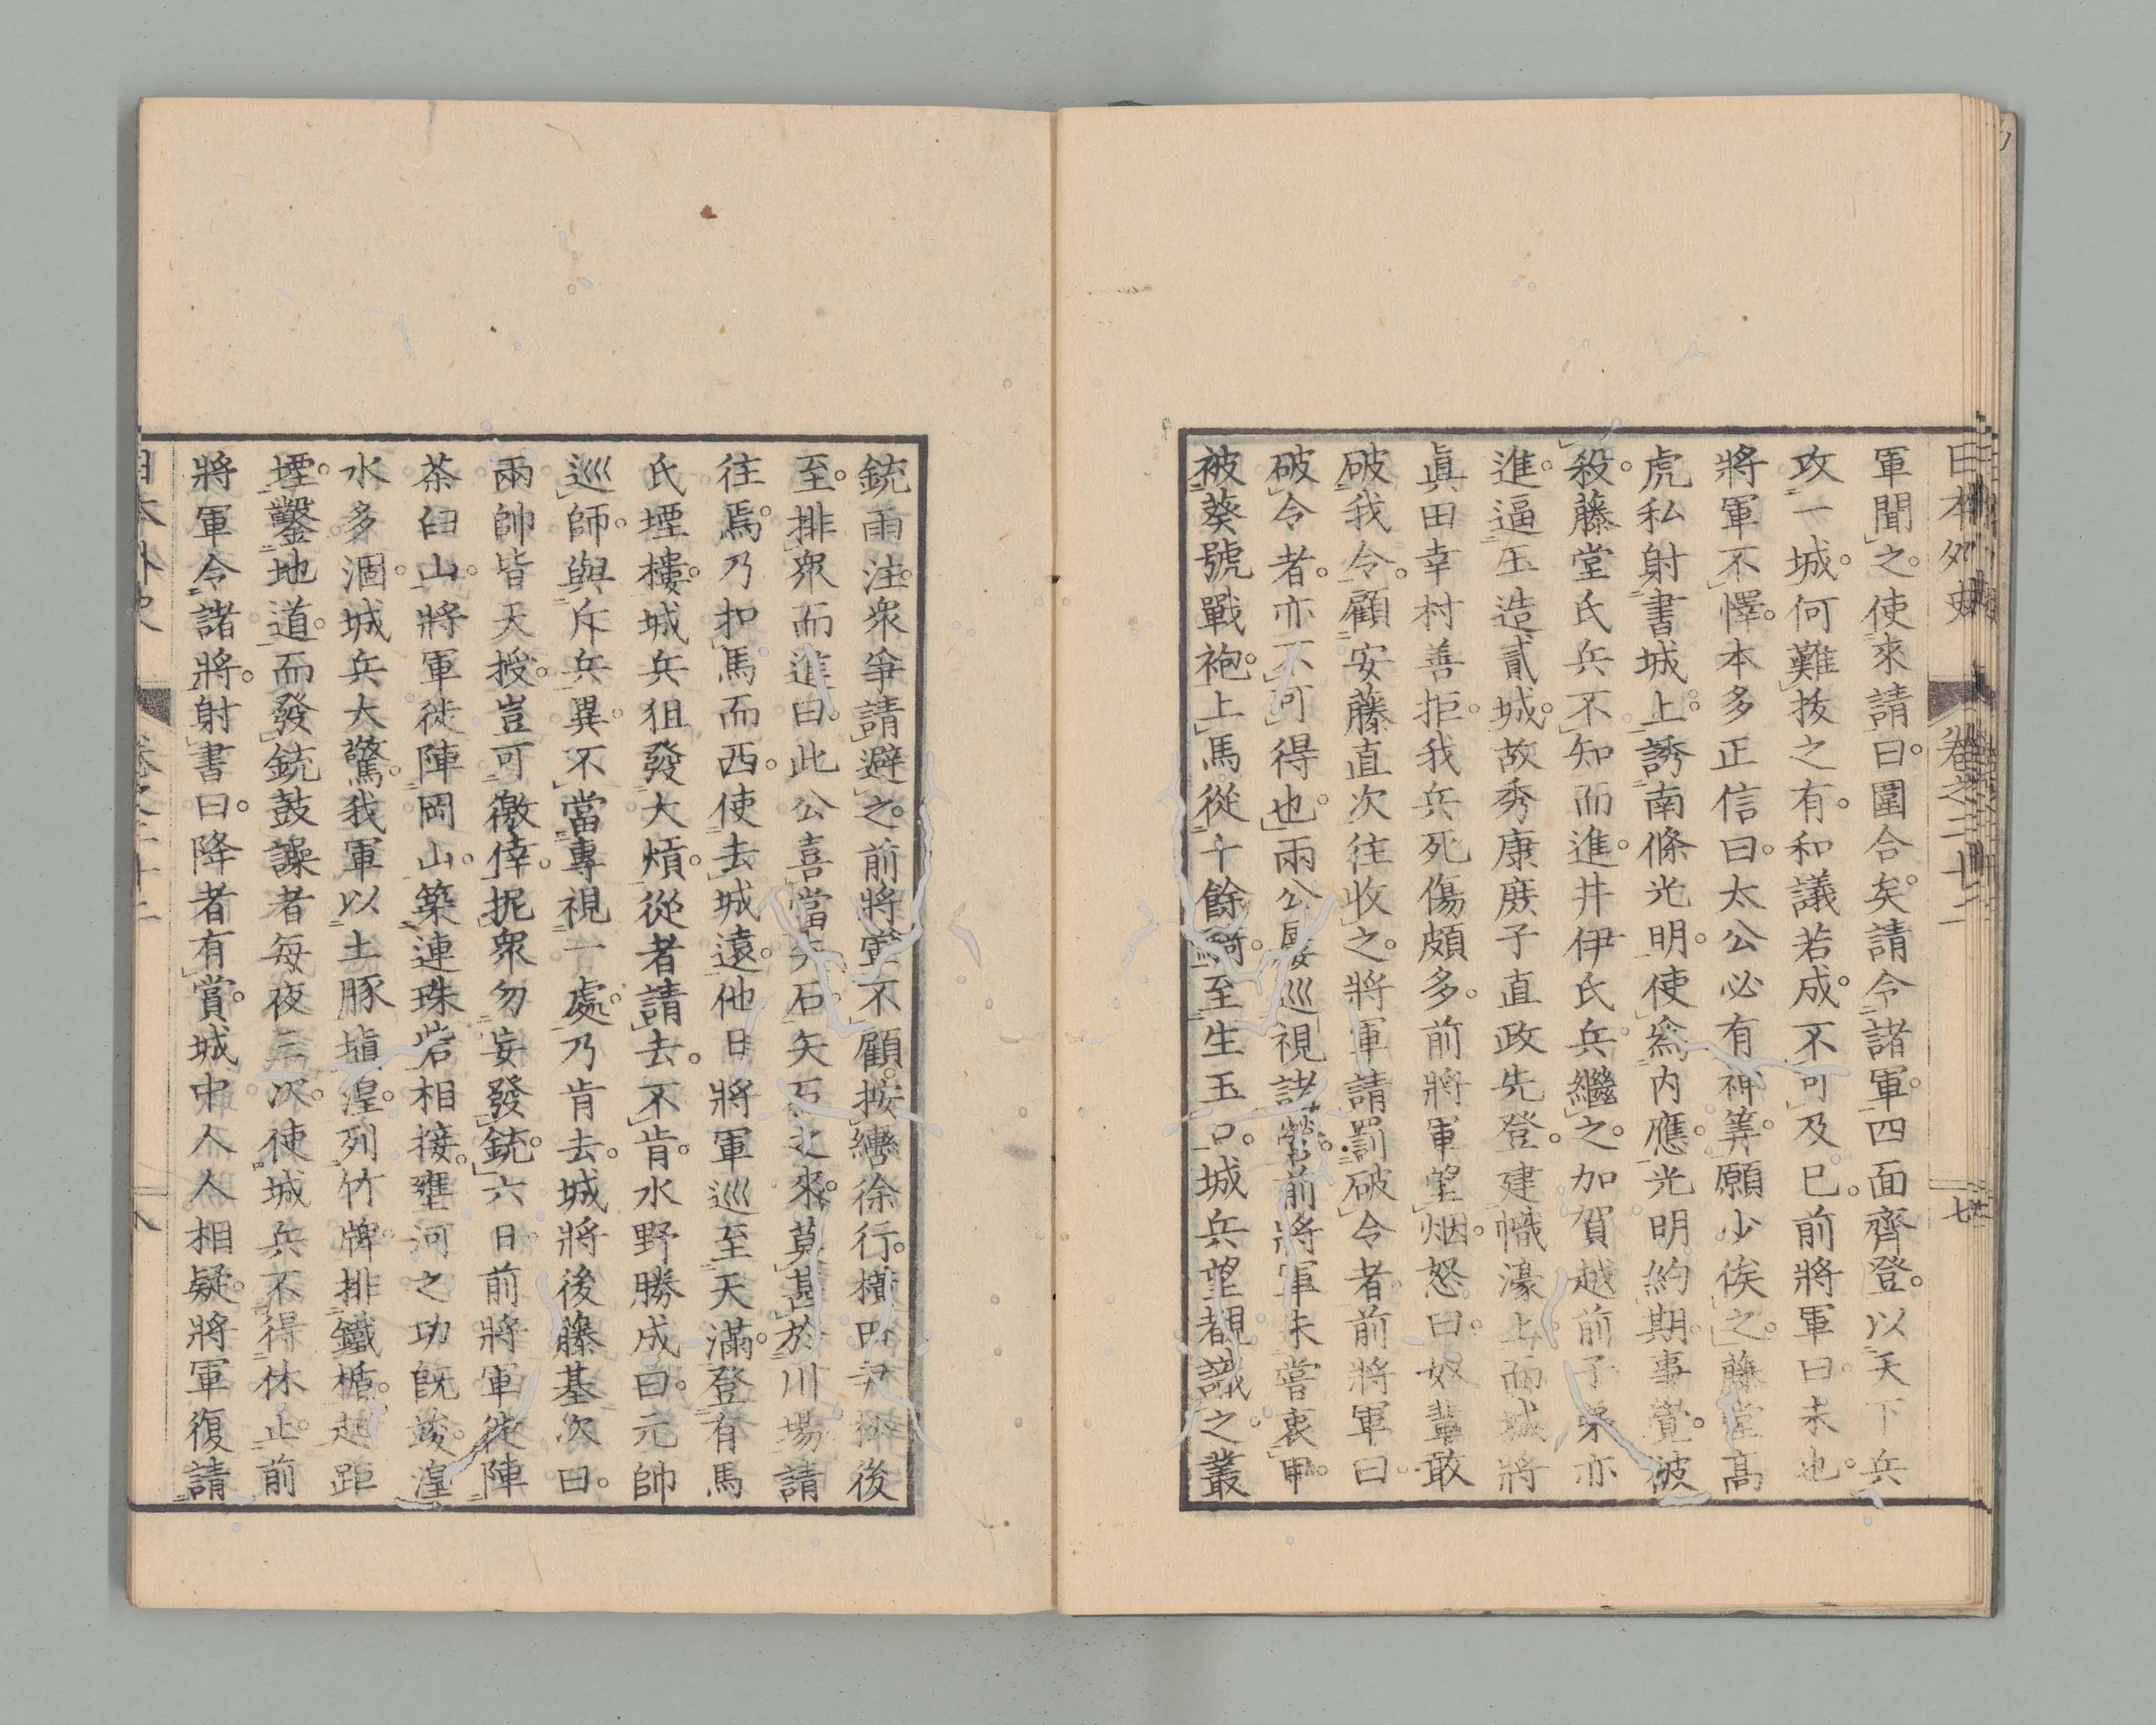 日本外史 卷之二十二 七
軍聞之。使來請曰。圍合矣。請令諸軍。四面齊登。以天下兵
攻一城。何難拔之有。和議若成。不可及已。前將軍曰。未也。
將軍不懌。本多正信曰。太公必有神筭。願少俟之。藤堂高
虎私射書城上。誘南條光明。使爲内應。光明約期。事覺。彼
殺。藤堂氏兵不知而進。井伊氏兵繼之。加賀越前子弟亦
進。逼玉造貳城。故秀康庶子直政先登。建幟濠上。而城將
眞田幸村善拒。我兵死傷頗多。前將軍望烟。怒曰。奴輩敢
破我令。顧安藤直次往收之。將軍請罰破令者。前將軍曰。
破令者。亦不可得也。兩公屢巡視諸營。前將軍未嘗衷甲。
被葵號戰袍。上馬從十餘騎。至生玉口。城兵望覩識之。叢
銃雨注。衆爭請避之。前將軍不顧。按轡徐行。橫田尹松後
至。排衆而進曰。此公喜當矢石。矢石之來。莫甚於川場。請
往焉。乃扣馬而西。使去城遠。他日將軍巡至天滿。登有馬
氏堙樓。城兵狙發大熕。從者請去。不肯。水野勝成曰。元帥
巡師。與斥兵異。不當專視一處。乃肯去。城將後藤基次曰。
兩帥皆天授。豈可徼倖。扼衆勿妄發銃。六日。前將軍徙陣
茶臼山。將軍徙陣岡山。築連珠砦相接。壅河之功既竣。湟
水多涸。城兵大驚。我軍以土豚塡湟。列竹牌。排鐵楯。起距
堙。鑿地道。而發銃鼓譟者每夜三次。使城兵不得休止。前
將軍令諸將。射書曰。降者有賞。城中人人相疑。將軍復請
日本外史 卷之二十二 八